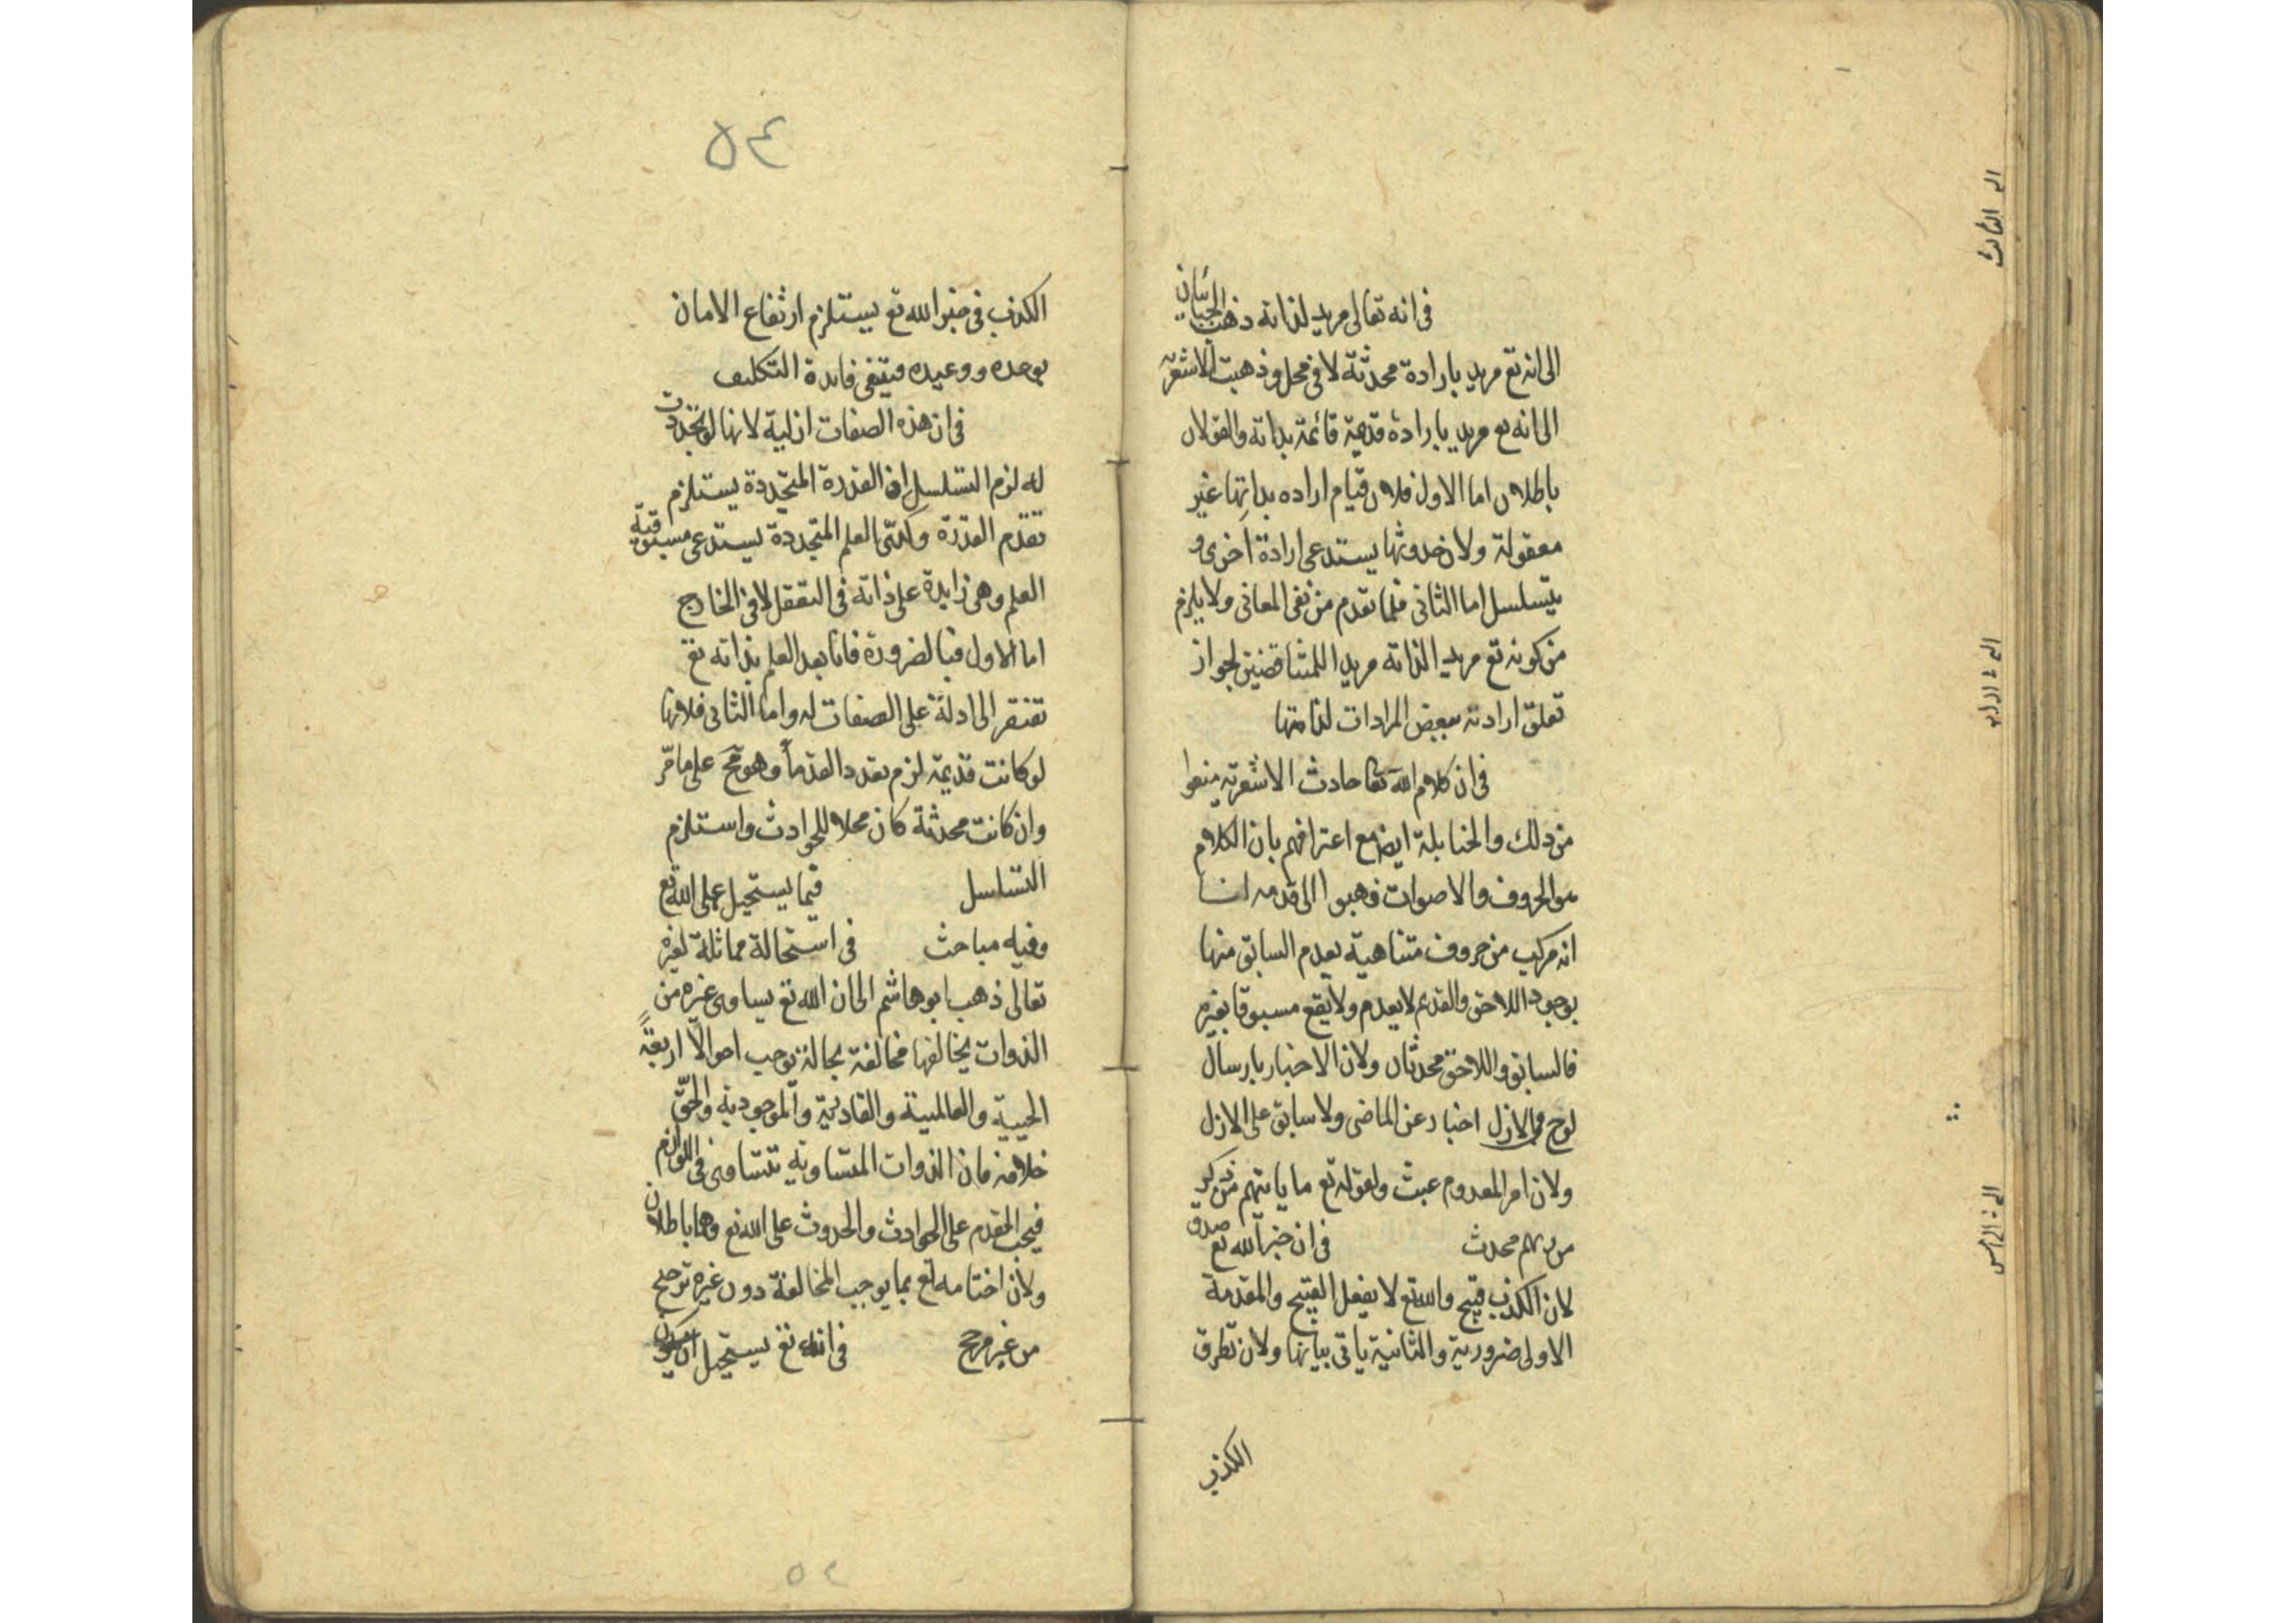 في انه تعالى مريد لذاته ذهب الجبائيان
الى انه تع مريد بارادة محدثة لا في محل وذهبت الاشعرية
الى انه تع مريد بارادة قديمة قائمة بذاته والقولان
باطلان اما الاول فلان قيام اراده بذاتها غير
معقولة ولان حدوثها يستدعى ارادة اخرى و
يتسلسل اما الثانى فلما تقدم من نفى المعانى ولا يلزم
من كونه تع مريدا لذاته مريدا للمتناقضين لجواز
تعلق ارادته ببعض المرادات لذاتها
في ان كلام الله تعا حادث الاشعرية منعوا
من ذلك والحنابلة ايض مع اعترافهم بان الكلام
هو الحروف والاصوات ذهبوا الى قدمه لنا
انه مركب من حروف متناهية يعدم السابق منها
بوجود اللاحق والقديم لا يعدم ولا يقع مسبوقا بغيره
فالسابق واللاحق محدثان ولان الاخبار بارسال
نوح في الازل اخبار عن الماضى ولا سابق على الازل
ولان امر المعدوم عبث ولقوله تع ما ياتيهم من ذكر
من ربهم محدث في ان خبر الله تع صدق
لان الكذب قبيح والله تع لا يفعل القبيح والمقدمة
الاولى ضرورية والثانية ياتى بيانها ولان تطرق
الكذب
الثالث
الرابع
الخامس
٥٤
الكذب في خبر الله تع يستلزم ارتفاع الامان
بوعده ووعيده فينتفى فايدة التكليف
في ان هذه الصفات ازلية لانها لو تجددت
له لزم التسلسل لان القدرة المتجددة يستلزم
تقدم القدرة وكذا العلم المتجددة يستدعى مسبوقية
العلم وهى زايدة على ذاته في التعقل لا في الخارج
اما الاول فبالضرورة فانا بعد العلم بذاته تع
نفتقر الى ادلة على الصفات له واما الثانى فلانها
لو كانت قديمة لزم تعدد القدماء وهو مح على ما مرّ
وان كانت محدثة كان محلا للحوادث واستلزم
التسلسل فيما يستحيل على الله تع
وفيه مباحث في استحالة مماثلة لغيره
تعالى ذهب ابو هاشم الى ان الله تع يساوى غيره من
الذوات يخالفها مخالفة بحالة توجب احوالا اربعة
الحيية والعالمية والقادرية والموجودية والحقّ
خلافه فان الذوات المتساوية تتساوى في اللوازم
فيجب القدم على الحوادث والحدوث على الله تع وهما باطلان
ولان اختصاصه تع بما يوجب المخالفة دون غيره ترجيح
من غير مرجح في انه تع يستحيل ان يكون
٥٤